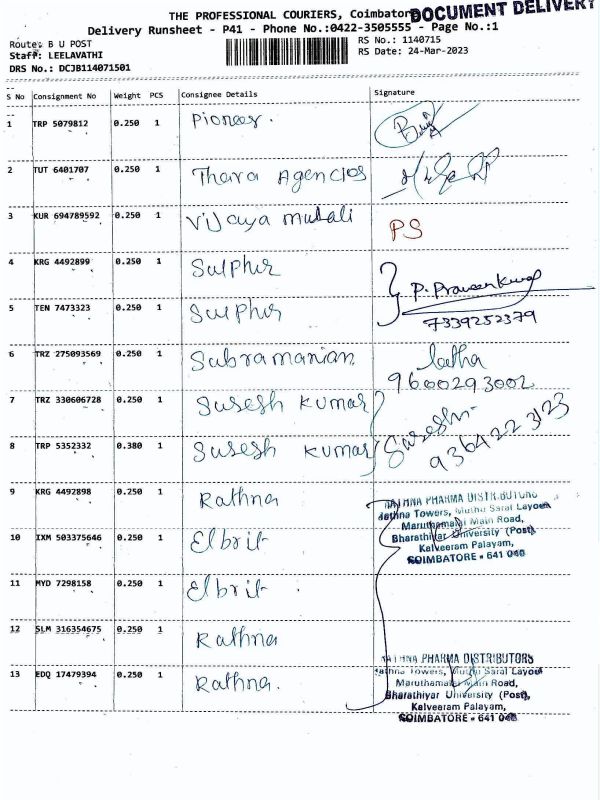 THE PROFESSIONAL COURIERS, Coimbator
DOCUMENT DELIVERY
Delivery Runsheet - P41 - Phone No.:0422-3505555 - Page No.:1
Route: B U POST
RS No.: 1140715
Staff: LEELAVATHI
RS Date: 24-Mar-2023
DRS No.: DCJB114071501
S No Consignment No Weight PCS Consignee Details Signature
1 TRP 5079812 0.250 1 Pioneer.
2 TUT 6401707 0.250 1 Thara Agencies
3 KUR 694789592 0.250 1 Vijaya Murali PS
4 KRG 4492899 0.250 1 Sulphur P. Praveenkumar
5 TEN 7473323 0.250 1 Sulphur 7339252379
6 TRZ 275093569 0.250 1 Subramanian latha
9600293002
7 TRZ 330606728 0.250 1 Suresh Kumar
8 TRP 5352332 0.380 1 Suresh Kumar Suresh
9364223123
9 KRG 4492898 0.250 1 Rathna
RATHNA PHARMA DISTRIBUTORS
Rathna Towers, Muthu Saral Layout
Maruthamalai Main Road,
Bharathiyar University (Post),
Kalveeram Palayam,
COIMBATORE - 641 046
10 IXM 503375646 0.250 1 Elbrit
11 MYD 7298158 0.250 1 Elbrit
12 SLM 316354675 0.250 1 Rathna
13 EDQ 17479394 0.250 1 Rathna.
RATHNA PHARMA DISTRIBUTORS
Rathna Towers, Muthu Saral Layout
Maruthamalai Main Road,
Bharathiyar University (Post),
Kalveeram Palayam,
COIMBATORE - 641 046